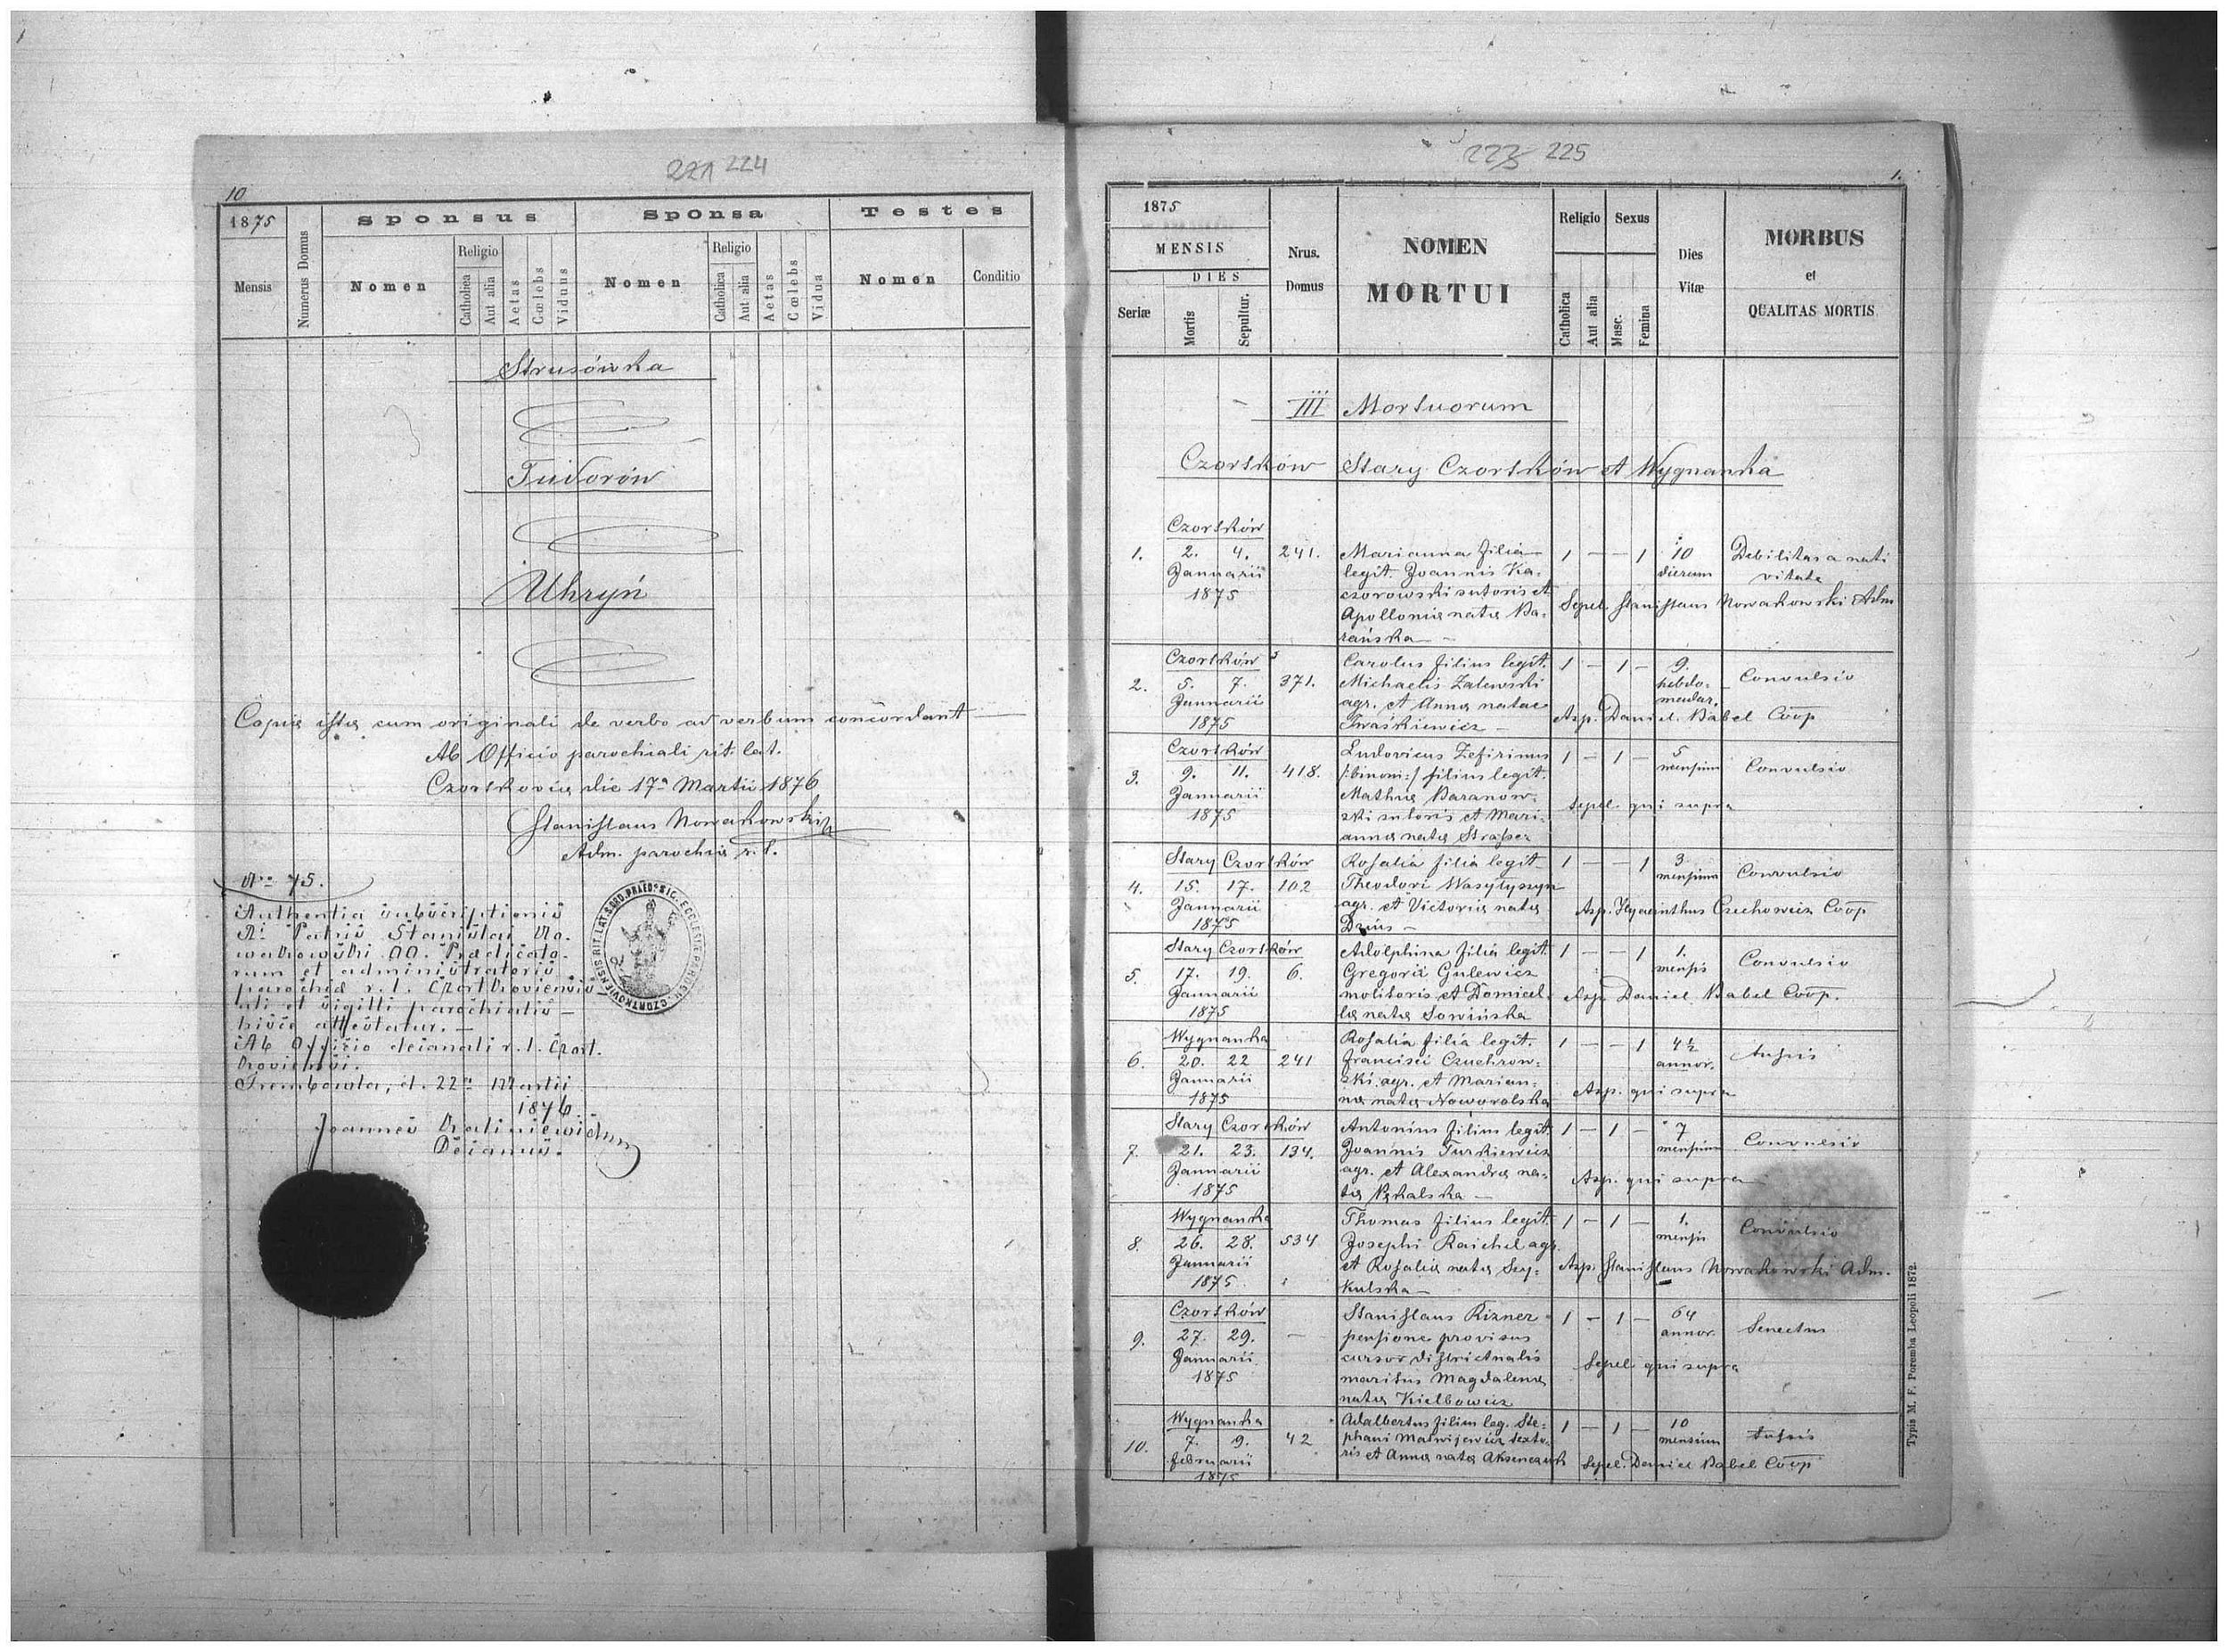 221 224
10
1875
Mensis
Numerus Domus
Sponsus
Nomen
Religio
Catholica
Aut alia
Aetas
Cœlebs
Viduus
Sponsa
Nomen
Religio
Catholica
Aut alia
Aetas
Cœlebs
Vidua
Testes
Nomen
Conditio
Strusówka
Tudorów
Uhryń
Copia ista cum originali de verbo ad verbum concordant
Ab Officio parochiali rit. lat.
Czortkoviæ die 17ª Martii 1876
Stanislaus Nowakowski
Adm. parochiæ r. l.
Nro 75.
Authentia subscriptionis
Rdi Patris Stanislai No-
wakowski OO. Prædicato-
rum et administratoris
parochiæ r. l. Czortkoviensis
uti et sigilli parochialis
hisce attestatur. —
Ab Officio decanali r. l. Czort-
koviensi.
Trembowla, d. 22a Martii
1876.
Joannes
Decanus.
223 225
1.
1875
MENSIS
DIES
Seriæ
Mortis
Sepultur.
Nrus. Domus
NOMEN
MORTUI
Religio
Catholica
Aut alia
Sexus
Masc.
Femina
Dies
Vitæ
MORBUS
et
QUALITAS MORTIS
III Mortuorum
Czortków Stary Czortków et Wygnanka
Czortków
1. 2. 4. 241. Marianna filia 1 — — 1 10 Debilitas a nati
Januarii legit. Joannis Ka- dierum vitate
1875 czorowski sutoris et Sepel. Stanislaus Nowakowski Adm
Apolloniæ natæ Ba-
rańska —
Czortków Carolus filius legit. 1 — 1 — 9.
2. 5. 7. 371. Michaelis Zalewski hebdo- Convulsio
Januarii agr. et Annæ natae madar.
1875 Iwaśkiewicz — Asp. Daniel Babel Coop
Czortków Ludovicus Zefirinus 1 — 1 — 5
3. 9. 11. 418. /:binom:/ filius legit. mensium Convulsio
Januarii Mathiæ Baranow-
1875 ski sutoris et Mari- Sepel. qui supra
annæ natæ Strasser
Stary Czortków Rosalia filia legit 1 — — 1 3
4. 15. 17. 102 Theodori Wasylyszyn mensium Convulsio
Januarii agr. et Victoriæ natæ Asp. Hyacinthus Czechowicz Coop
1875 Dziuś —
Stary Czortków Adolphina filia legit. 1 — — 1 1.
5. 17. 19. 6. Gregorii Gulewicz mensis Convulsio
Januarii molitoris et Domicel- Asp. Daniel Babel Coop.
1875 læ natæ Sowińska
Wygnanka Rosalia filia legit. 1 — — 1 4½
6. 20. 22 241 Francisci Czuchrow- annor. Tussis
Januarii ski agr. et Marian- Asp. qui supra
1875 næ natæ Noworolska
Stary Czortków Antonius filius legit. 1 — 1 — 7
7. 21. 23. 134. Joannis Turkiewicz mensium Convulsio
Januarii agr. et Alexandræ na- Asp. qui supra
1875 tæ Pękalska —
Wygnanka Thomas filius legit. 1 — 1 — 1.
8. 26. 28. 534 Josephi Raichel agr. mensis Convulsio
Januarii et Rosaliæ natæ Sey- Asp. Stanislaus Nowakowski Adm.
1875 kulska —
Czortków Stanislaus Rizner 1 — 1 — 64
9. 27. 29. — pensione provisus annor. Senectus
Januarii cursor districtualis Sepel. qui supra
1875 maritus Magdalenæ
natæ Kielbowicz
Wygnanka Adalbertus filius leg. Ste- 1 — 1 — 10
10. 7. 9. 42 phani Matwijewicz texto- mensium Tussis
Februarii ris et Annæ natæ Aksenczuk Sepel. Daniel Babel Coop
1875
Typis M. F. Poremba Leopoli 1872.